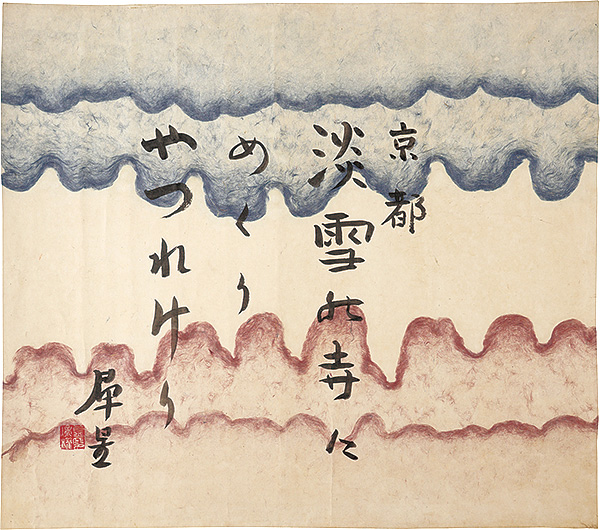 京都
淡雪の寺々
めくり
やつれけり
犀星